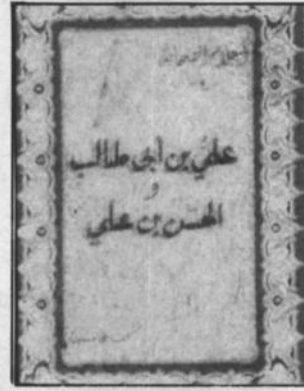 علي بن أبي طالب
و
الحسن بن علي